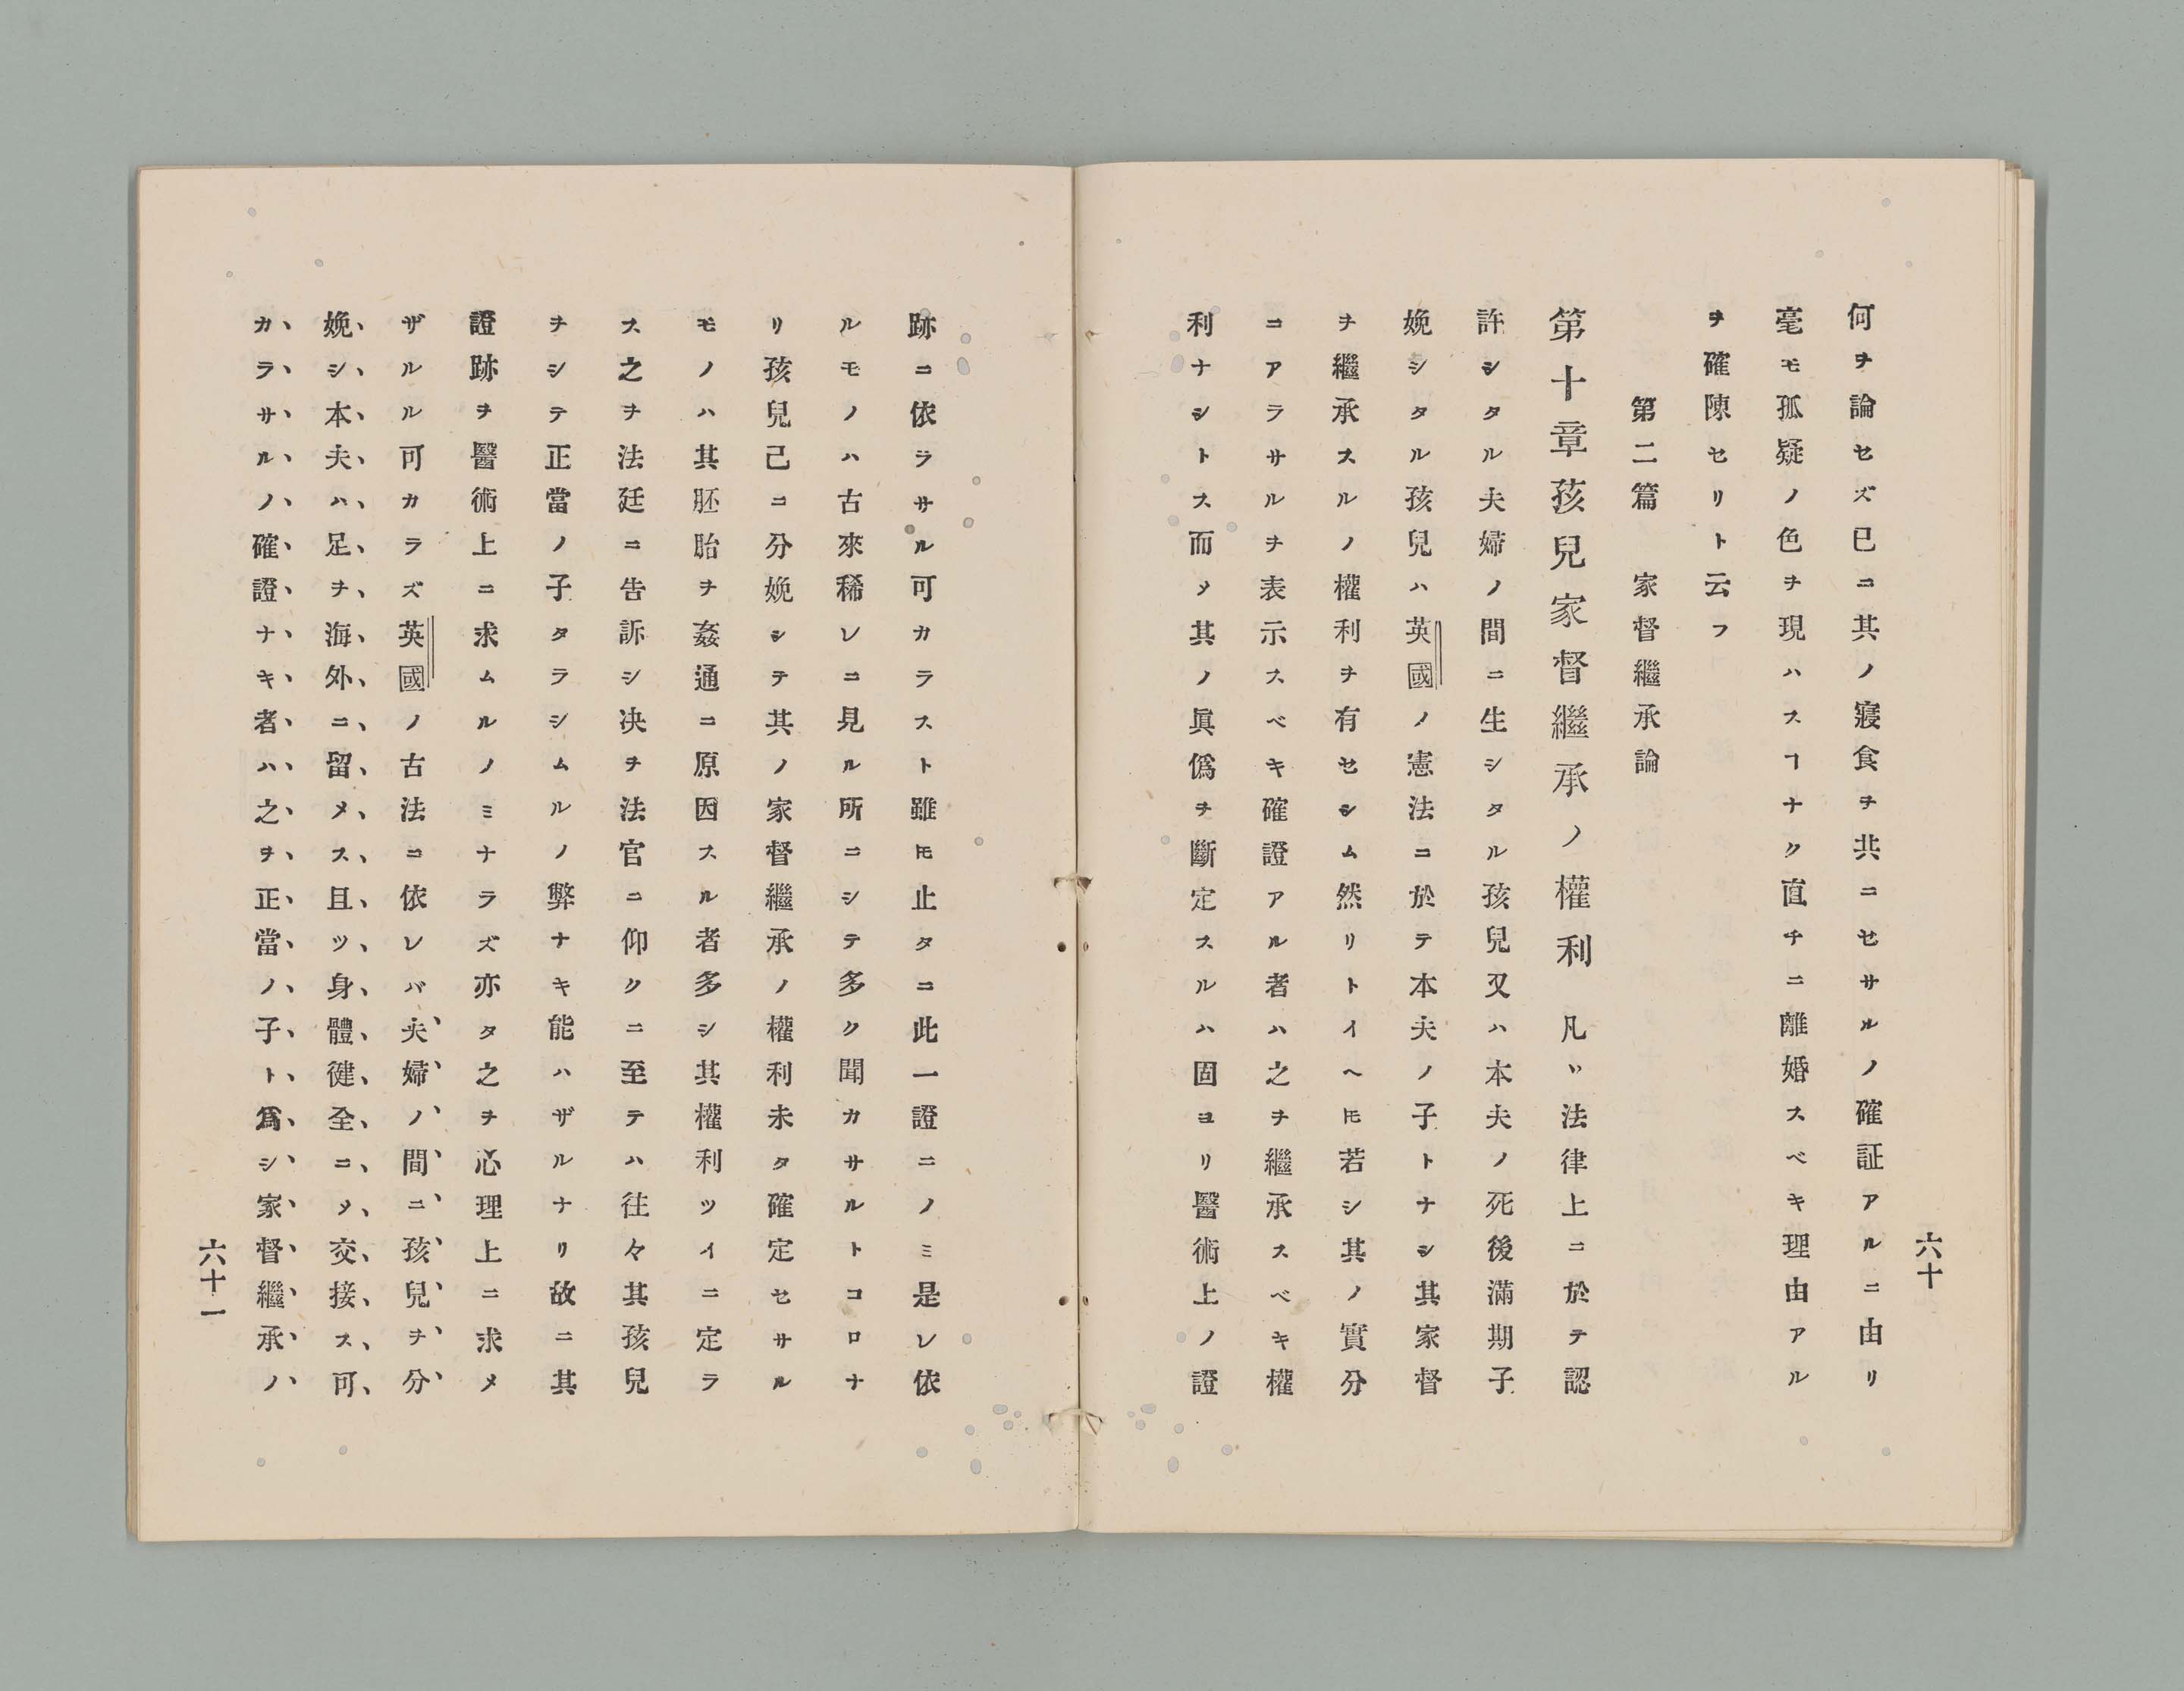 六十
何ヲ論セズ已ニ其ノ寢食ヲ共ニセサルノ確証アルニ由リ
毫モ孤疑ノ色ヲ現ハスヿナク直チニ離婚スベキ理由アル
ヲ確陳セリト云フ
第二篇　家督繼承論
第十章孩兒家督繼承ノ權利　凡ソ法律上ニ於テ認
許シタル夫婦ノ間ニ生シタル孩兒又ハ本夫ノ死後滿期子
娩シタル孩兒ハ英國ノ憲法ニ於テ本夫ノ子トナシ其家督
ヲ繼承スルノ權利ヲ有セシム然リトイヘ𪜈若シ其ノ實分
ニアラサルヲ表示スベキ確證アル者ハ之ヲ繼承スベキ權
利ナシトス而〆其ノ眞僞ヲ斷定スルハ固ヨリ醫術上ノ證
跡ニ依ラサル可カラスト雖𪜈止タニ此一證ニノミ是レ依
ルモノハ古來稀レニ見ル所ニシテ多ク聞カサルトコロナ
リ孩兒己ニ分娩シテ其ノ家督繼承ノ權利未タ確定セサル
モノハ其胚胎ヲ姦通ニ原因スル者多シ其權利ツイニ定ラ
ス之ヲ法廷ニ告訴シ决ヲ法官ニ仰クニ至テハ往々其孩兒
ヲシテ正當ノ子タラシムルノ弊ナキ能ハザルナリ故ニ其
證跡ヲ醫術上ニ求ムルノミナラズ亦タ之ヲ心理上ニ求メ
ザルル可カラズ英國ノ古法ニ依レバ夫婦ノ間ニ孩兒ヲ分
娩シ本夫ハ足ヲ海外ニ留メス且ツ身體健全ニ〆交接ス可
カラサルノ確證ナキ者ハ之ヲ正當ノ子ト爲シ家督繼承ノ
六十一